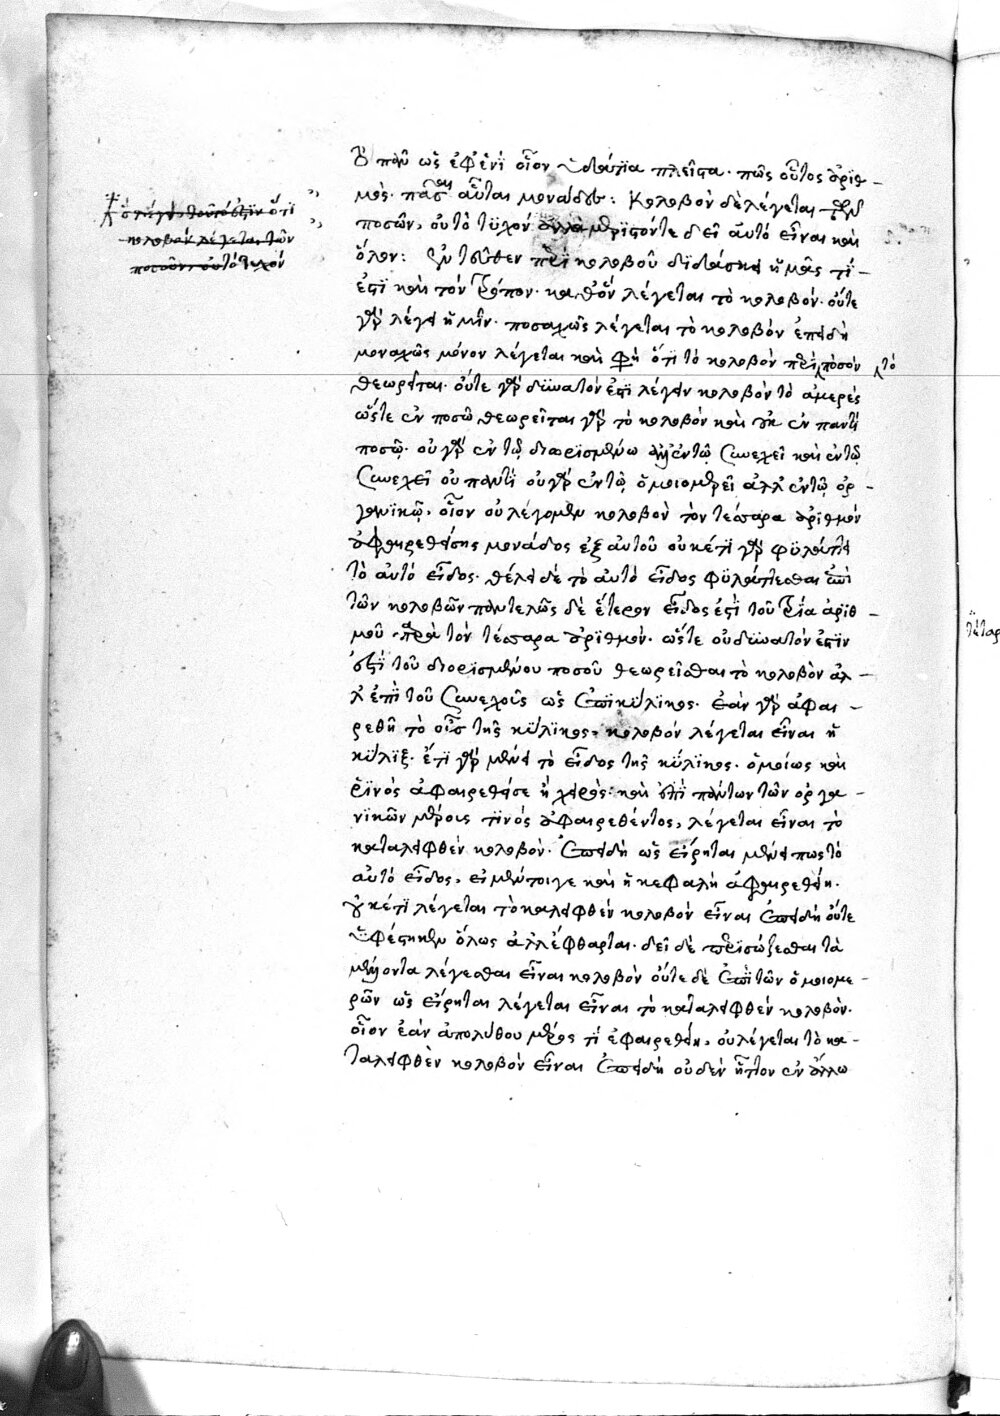 ὃ πᾶν ὡς ἐφ' ἑνὶ οἷον ὕδατα πλεῖστα. πῶς οὗτος ἀριθ-
μὸς. πᾶσαι αὗται μονάδες: Κολοβὸν δὲ λέγεται τῶν
ποσῶν, οὐ τὸ τυχὸν ἀλλὰ μεριστόν τε δεῖ αὐτὸ εἶναι καὶ
ὅλον: ἐντεῦθεν περὶ κολοβοῦ διδάσκει ἡμᾶς τί
ἐστι καὶ τὸν τρόπον. καθ' ὃν λέγεται τὸ κολοβόν. οὔτε
γὰρ λέγει ἡμῖν. ποσαχῶς λέγεται τὸ κολοβὸν ἐπειδὴ
μοναχῶς μόνον λέγεται καὶ φη ὅτι τὸ κολοβὸν περὶ ποσὸν τὸ
θεωρεῖται. οὔτε γὰρ δυνατὸν ἐστι λέγειν κολοβὸν τὸ ἀμερές
ὥστε ἐν ποσῶ θεωρεῖται γὰρ τὸ κολοβὸν καὶ οὐκ ἐν παντὶ
ποσῷ. οὐ γὰρ ἐν τῷ διωρισμένω ἀλλ' ἐν τῷ συνεχεῖ καὶ ἐν τῷ
συνεχεῖ οὐ παντὶ οὐ γὰρ ἐν τῷ ὁμοιομερεῖ ἀλλ' ἐν τῷ ὀρ-
γανικῷ. οἷον οὐ λέγομεν κολοβὸν τὸν τέσσαρα ἀριθμόν
ἀφαιρεθείσης μονάδος ἐξ αὐτοῦ οὐκέτι γὰρ φυλάττει
τὸ αὐτὸ εἶδος. θέλει δὲ τὸ αὐτὸ εἶδος φυλάττεσθαι ἐπὶ
τῶν κολοβῶν παντελῶς δὲ ἕτερον εἶδος ἐστὶ τοῦ τρία ἀριθ-
μοῦ παρὰ τὸν τέσσαρα ἀριθμόν. ὥστε οὐ δυνατόν ἐστιν
ἐπὶ τοῦ διορισμένου ποσοῦ θεωρεῖσθαι τὸ κολοβὸν ἀλ-
λ' ἐπὶ τοῦ συνεχοῦς ὡς ἐπὶ κύλικος. ἐὰν γὰρ ἀφαι-
ρεθῆ τὸ οὖς τῆς κύλικος, κολοβὸν λέγεται εἶναι ἡ
κύλιξ. ἔτι γὰρ μένει τὸ εἶδος τῆς κύλικος. ὁμοίως καὶ
ῥινὸς ἀφαιρεθείσης ἢ χειρὸς. καὶ ἐπὶ πάντων τῶν ὀργα-
νικῶν μέρους τινός ἀφαιρεθέντος, λέγεται εἶναι τὸ
καταλειφθὲν κολοβὸν. ἐπειδὴ ὡς εἴρηται μένει πως τὸ
αὐτὸ εἶδος, εἰ μέντοιγε καὶ ἡ κεφαλὴ ἀφαιρεθείη.
οὐκέτι λέγεται τὸ καλειφθὲν κολοβὸν εἶναι ἐπειδὴ οὔτε
ὑφέστηκεν ὅλως ἀλλ' ἔφθαρται. δεῖ δὲ περισώζεσθαι τὰ
μένοντα λέγεσθαι εἶναι κολοβὸν οὔτε δὲ ἐπὶ τῶν ὁμοιομε-
ρῶν ὡς εἴρηται λέγεται εἶναι τὸ καταλειφθὲν κολοβὸν.
οἷον ἐὰν ἀπὸ λίθου μέρος τί ἀφαιρεθείη, οὐ λέγεται τὸ κα-
ταλειφθὲν κολοβὸν εἶναι ἐπειδὴ οὐδὲν ἧττον ἐν ἄλλω
ὅτι
κολοβὸν λέγεται τῶν
ποσῶν, οὐ τὸ τυχόν